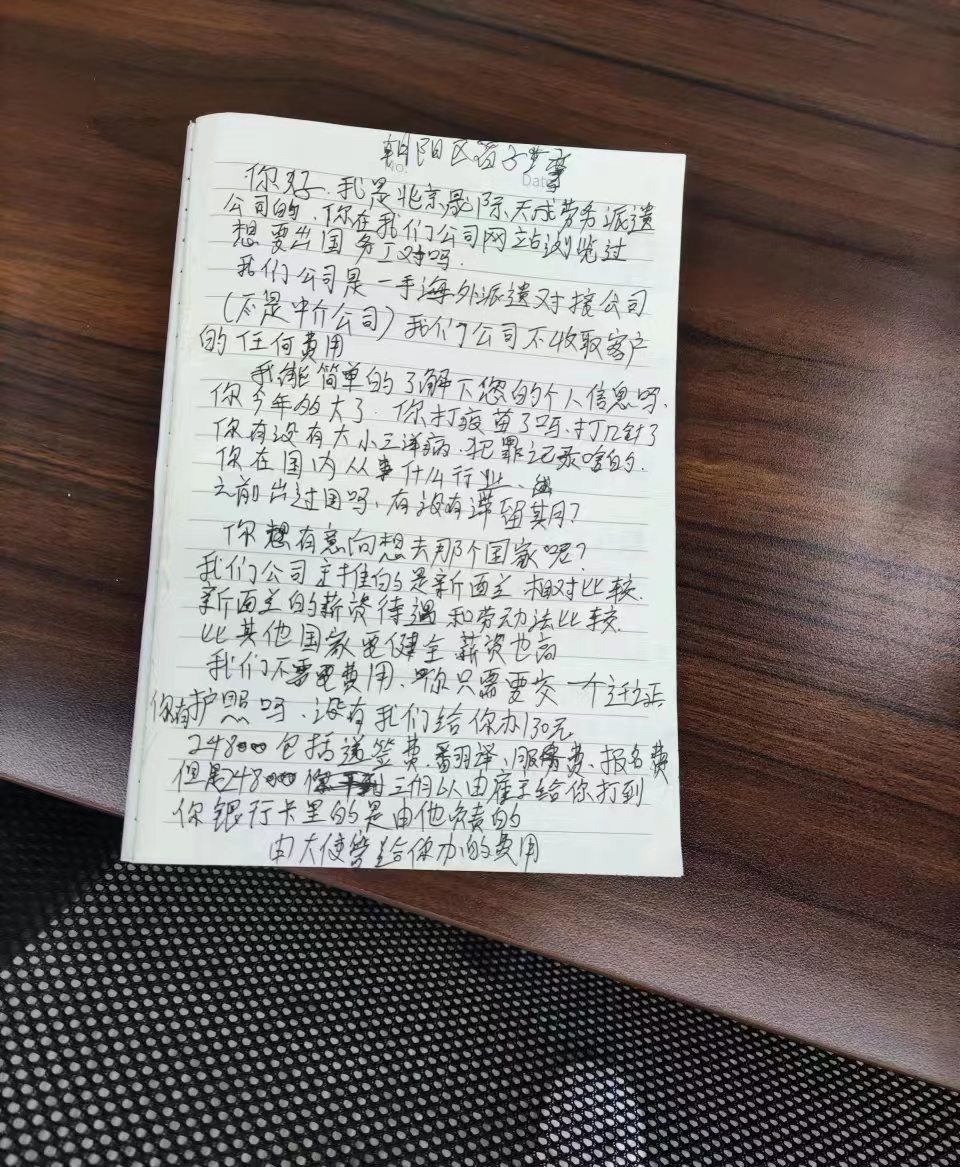 朝阳区
No:
Date
你好.我是北京晟际天成劳务派遣
公司的.你在我们公司网站浏览过
想要出国务工对吗.
我们公司是一手海外派遣对接公司
(不是中介公司)我们公司不收取客户
的任何费用
我能简单的了解下您的个人信息吗.
你今年多大了.你打疫苗了吗.打几针了
你有没有大小三洋病.犯罪记录啥的.
你在国内从事什么行业、
之前出过国吗,有没有滞留其月?
你想有意向想去那个国家呢?
我们公司主推的是新西兰 相对比较.
新西兰的薪资待遇和劳动法比较.
比其他国家更健全 薪资也高
我们不需要费用.你只需要交一个
你有护照吗、没有我们给你办130元
248 包括递签费.翻译、服务费、报名费
但是248 三个月以由雇主给你打到
你银行卡里的是由他负责的
由大使管给你办的费用